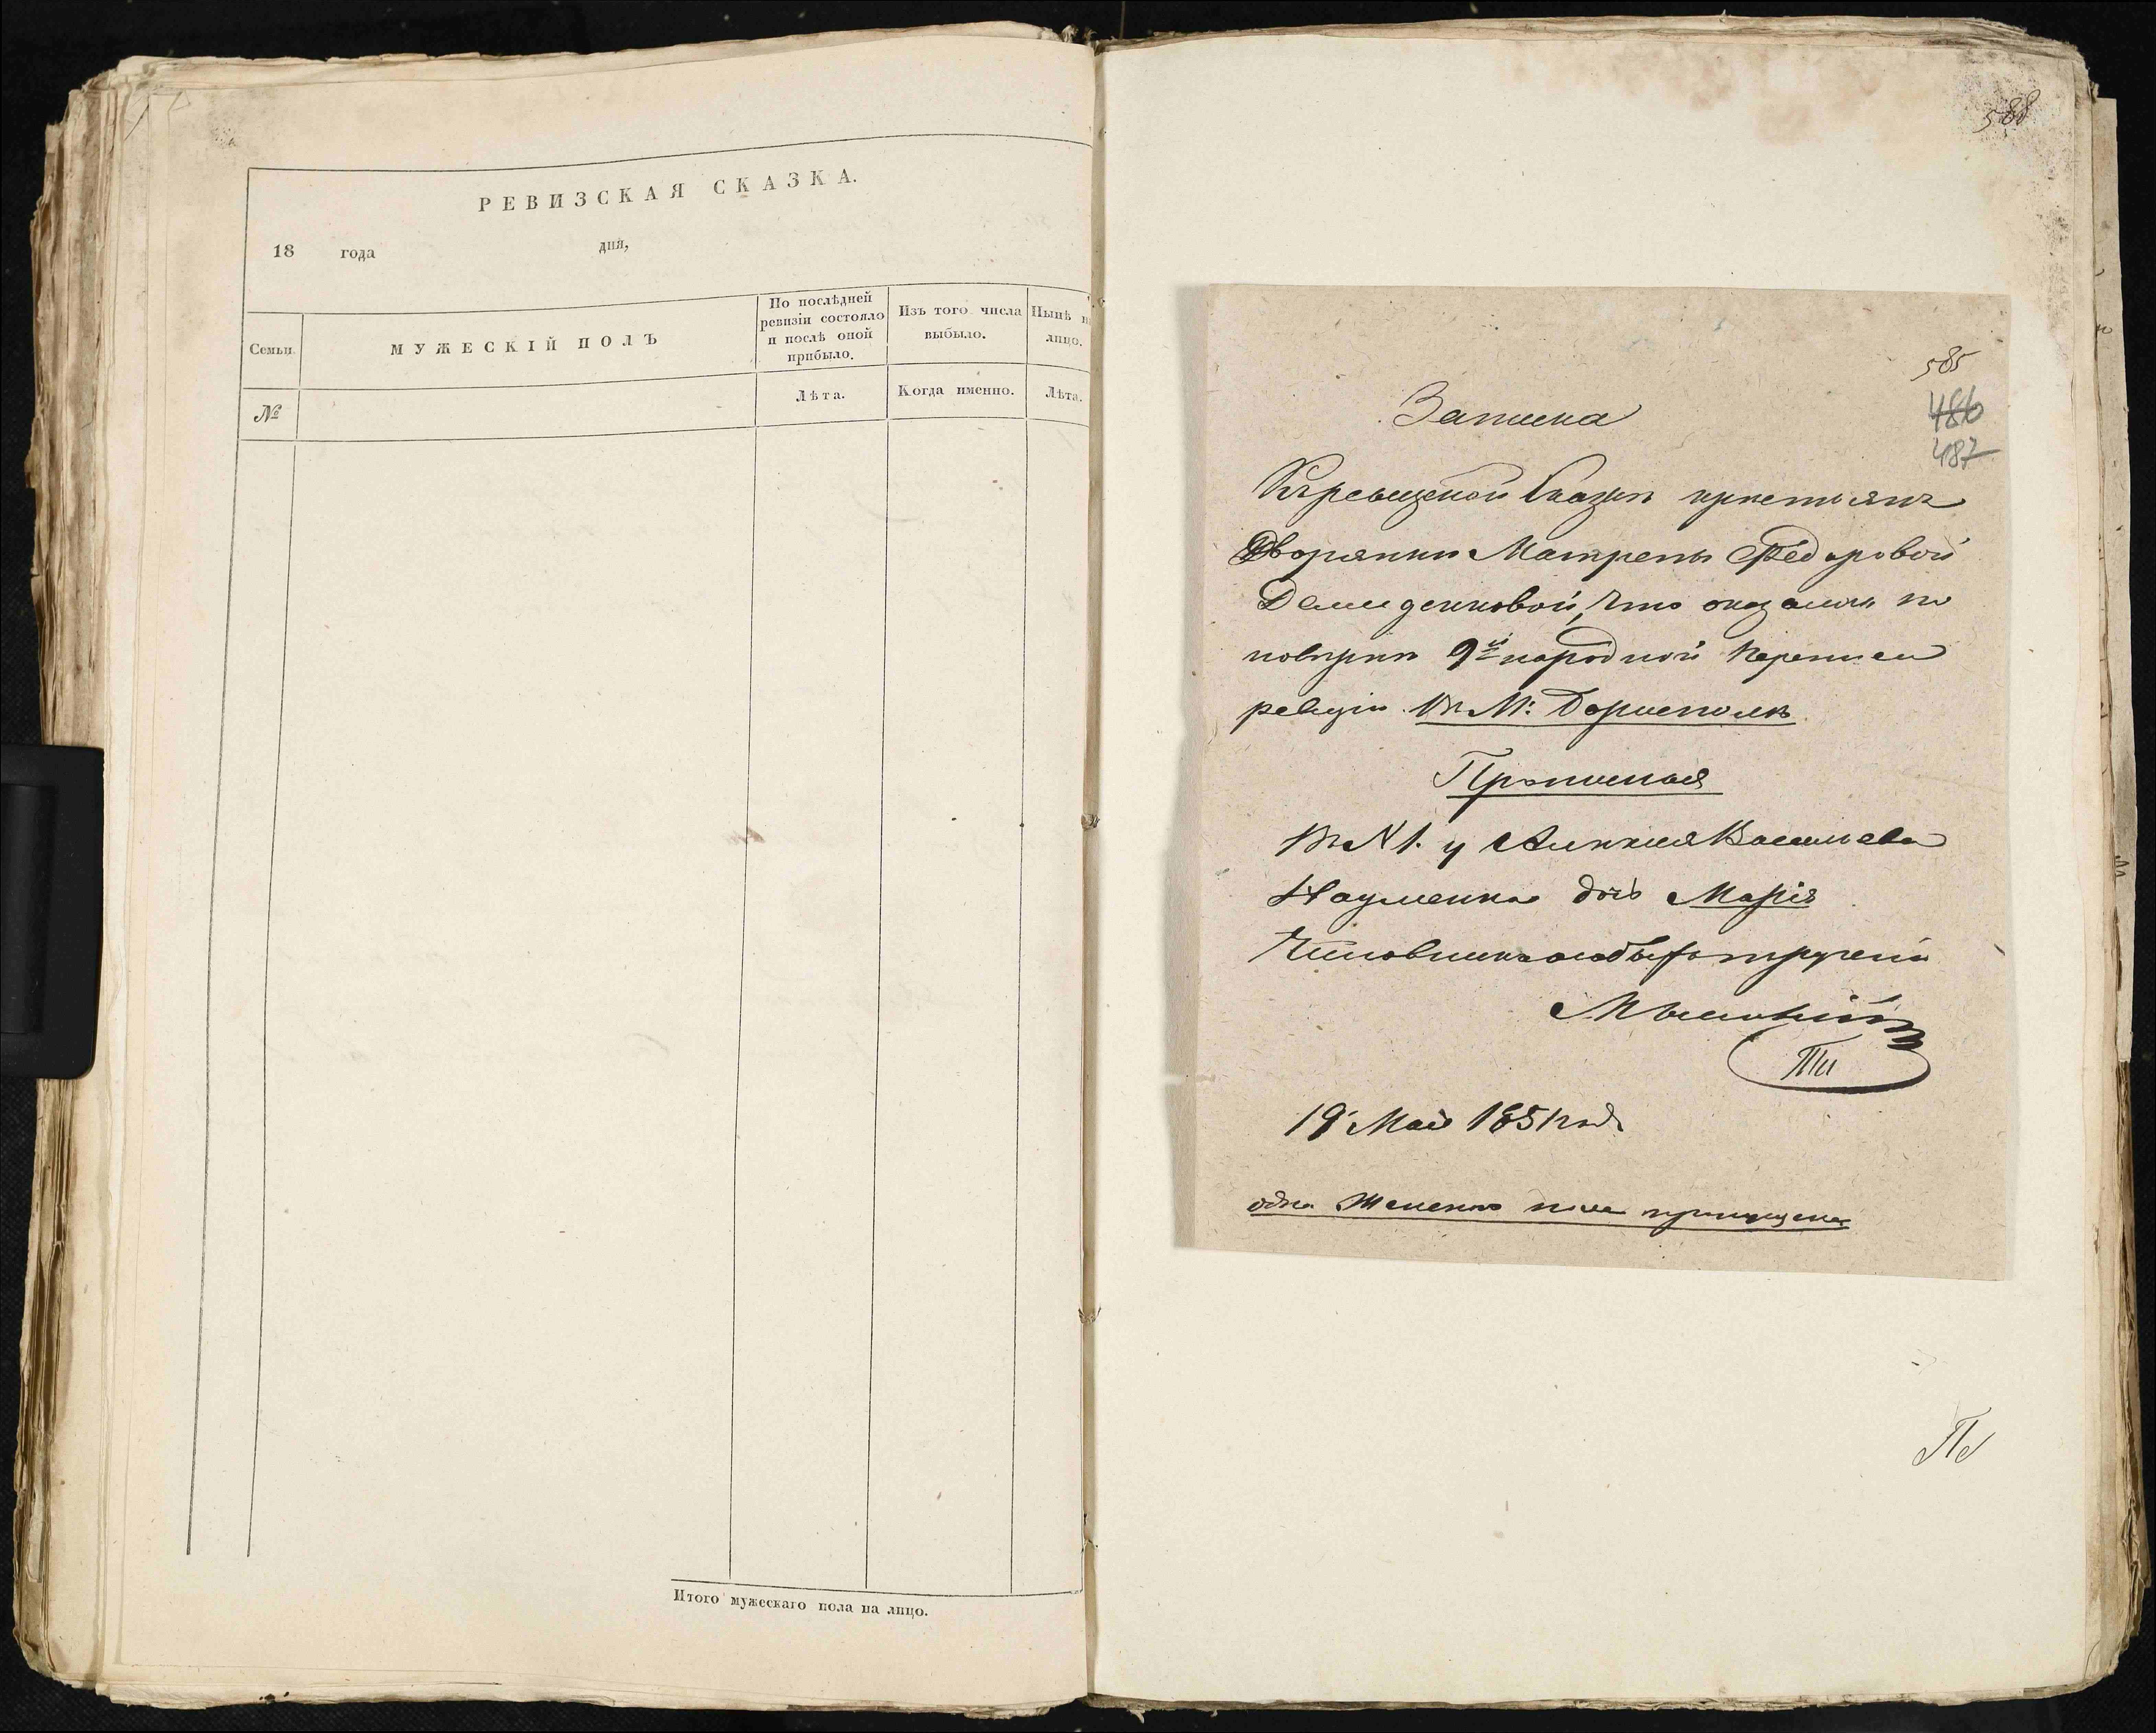 РЕВИЗСКАЯ СКАЗКА.
18 года дня,
Семьи.
МУЖЕСКІЙ ПОЛЪ
По послѣдней
ревизіи состояло
и послѣ оной
прибыло.
Изъ того числа
выбыло.
Нынѣ н
лицо.
№
Лѣта.
Когда именно.
Лѣта.
Итого мужескаго пола на лицо.
588
585
486
487
Записка
Къ ревизской сказкѣ крестьянъ
Дворянки Матрены Федоровой
Демиденковой, что оказалось по
повѣркѣ 9й народной переписи
ревизіи въ М: Борисполѣ
Прописная
въ N 1. у Алексѣя Васильева
Науменка дочь Марія
Чиновникъ особыхъ порученій
19 Мая 1851 года
одна женска пола пропущена